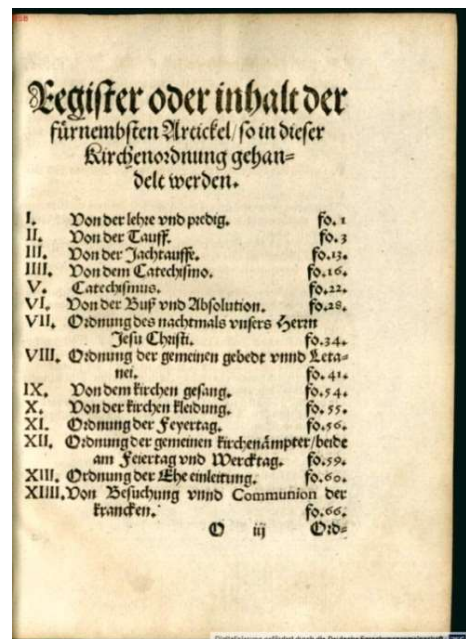 Register oder inhalt der
fürnembsten Artickel / so in dieser
Kirchenordnung gehan=
delt werden.
I. Von der lehre vnd predig. fo. 1
II. Von der Tauff. fo. 3
III. Von der Jachtauffe. fo. 13.
IIII. Von dem Catechismo. fo. 16.
V. Catechismus. fo. 22.
VI. Von der Buß vnd Absolution. fo. 28.
VII. Ordnung des nachtmals vnsers Herrn
Jesu Christi. fo. 34.
VIII. Ordnung der gemeinen gebedt vnnd Leta=
nei. fo. 41.
IX. Von dem kirchen gesang. fo. 54.
X. Von der kirchen kleidung. fo. 55.
XI. Ordnung der Feyertag. fo. 56.
XII. Ordnung der gemeinen kirchenämpter / beide
am Feiertag vnd Wercktag. fo. 59.
XIII. Ordnung der Ehe einleitung. fo. 60.
XIIII. Von Besuchung vnnd Communion der
krancken. fo. 66.
O iij Ord=